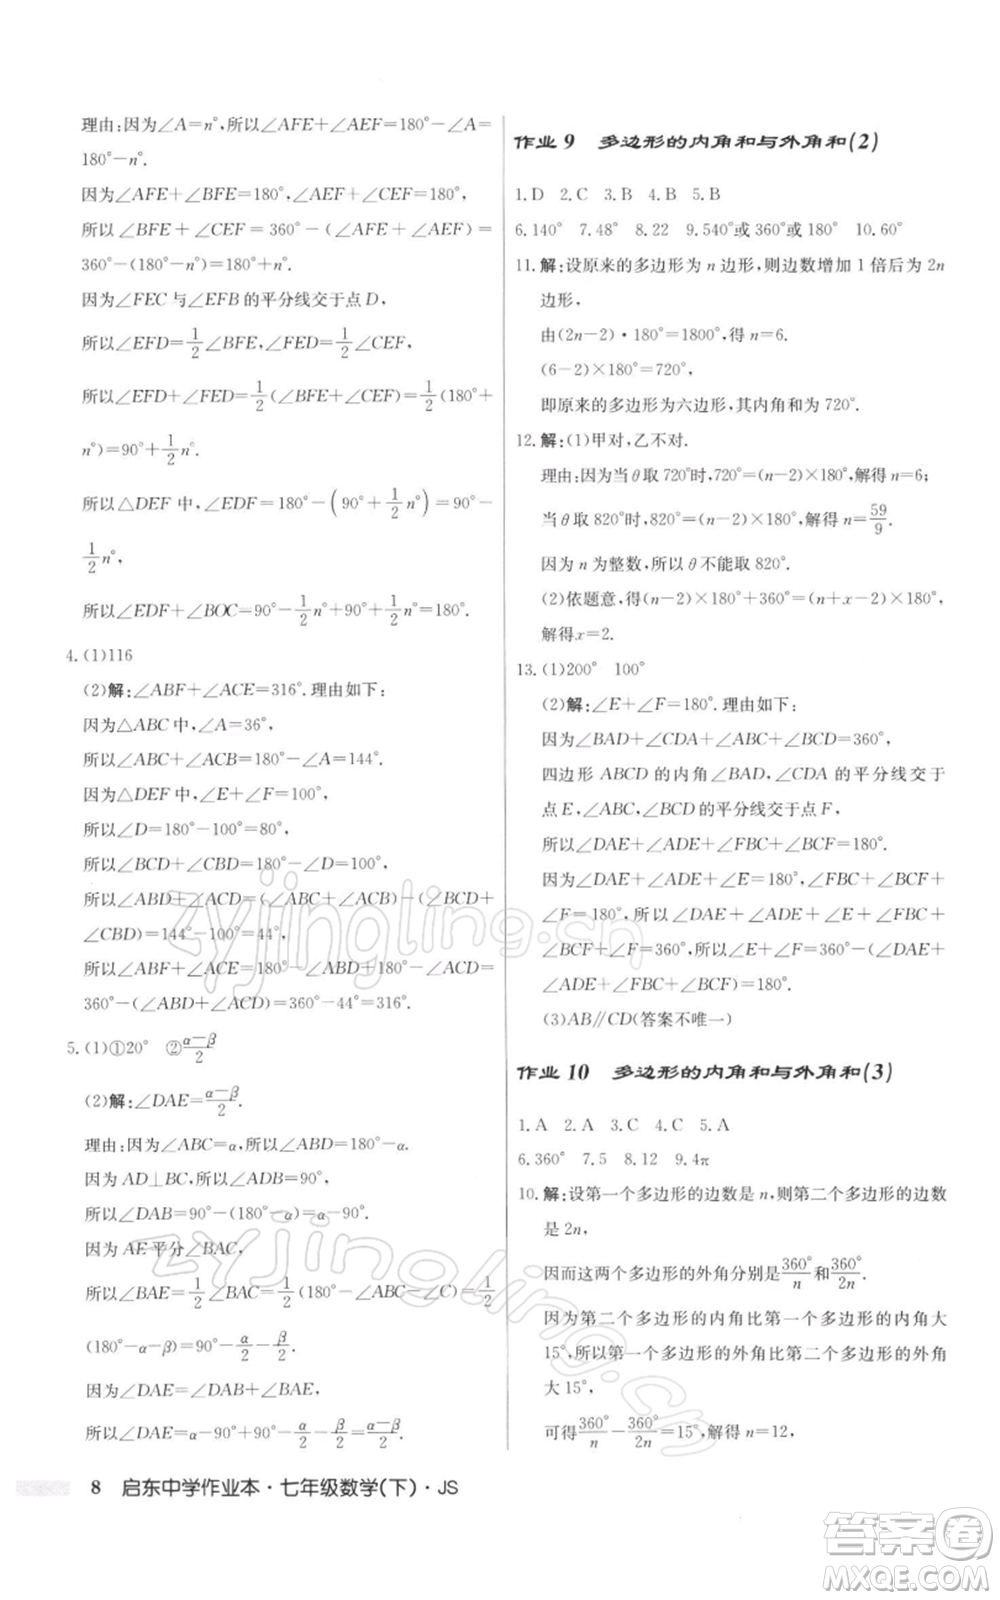 理由:因为∠A=n°,所以∠AFE+∠AEF=180°-∠A=
180°-n°.
因为∠AFE+∠BFE=180°,∠AEF+∠CEF=180°,
所以∠BFE+∠CEF=360°-(∠AFE+∠AEF)=
360°-(180°-n°)=180°+n°.
因为∠FEC与∠EFB的平分线交于点D,
所以∠EFD=1/2∠BFE,∠FED=1/2∠CEF,
所以∠EFD+∠FED=1/2(∠BFE+∠CEF)=1/2(180°+
n°)=90°+1/2n°.
所以△DEF中,∠EDF=180°-(90°+1/2n°)=90°-
1/2n°,
所以∠EDF+∠BOC=90°-1/2n°+90°+1/2n°=180°.
4.(1)116
(2)解:∠ABF+∠ACE=316°.理由如下:
因为△ABC中,∠A=36°,
所以∠ABC+∠ACB=180°-∠A=144°.
因为△DEF中,∠E+∠F=100°,
所以∠D=180°-100°=80°,
所以∠BCD+∠CBD=180°-∠D=100°,
所以∠ABD+∠ACD=(∠ABC+∠ACB)-(∠BCD+
∠CBD)=144°-100°=44°,
所以∠ABF+∠ACE=180°-∠ABD+180°-∠ACD=
360°-(∠ABD+∠ACD)=360°-44°=316°.
5.(1)①20° ②(α-β)/2
(2)解:∠DAE=(α-β)/2.
理由:因为∠ABC=α,所以∠ABD=180°-α.
因为AD⊥BC,所以∠ADB=90°,
所以∠DAB=90°-(180°-α)=α-90°.
因为AE平分∠BAC,
所以∠BAE=1/2∠BAC=1/2(180°-∠ABC-∠ACB)=1/2
(180°-α-β)=90°-α/2-β/2.
因为∠DAE=∠DAB+∠BAE,
所以∠DAE=α-90°+90°-α/2-β/2=α/2-β/2=(α-β)/2.
8 启东中学作业本·七年级数学(下)·JS
作业9 多边形的内角和与外角和(2)
1.D 2.C 3.B 4.B 5.B
6.140° 7.48° 8.22 9.540°或360°或180° 10.60°
11.解:设原来的多边形为n边形,则边数增加1倍后为2n
边形,
由(2n-2)·180°=1800°,得n=6.
(6-2)×180°=720°,
即原来的多边形为六边形,其内角和为720°.
12.解:(1)甲对,乙不对.
理由:因为当θ取720°时,720°=(n-2)×180°,解得n=6;
当θ取820°时,820°=(n-2)×180°,解得n=59/9.
因为n为整数,所以θ不能取820°.
(2)依题意,得(n-2)×180°+360°=(n+x-2)×180°,
解得x=2.
13.(1)200° 100°
(2)解:∠E+∠F=180°.理由如下:
因为∠BAD+∠CDA+∠ABC+∠BCD=360°,
四边形ABCD的内角∠BAD,∠CDA的平分线交于
点E,∠ABC,∠BCD的平分线交于点F,
所以∠DAE+∠ADE+∠FBC+∠BCF=180°.
因为∠DAE+∠ADE+∠E=180°,∠FBC+∠BCF+
∠F=180°,所以∠DAE+∠ADE+∠E+∠FBC+
∠BCF+∠F=360°,所以∠E+∠F=360°-(∠DAE+
∠ADE+∠FBC+∠BCF)=180°.
(3)AB∥CD(答案不唯一)
作业10 多边形的内角和与外角和(3)
1.A 2.A 3.C 4.C 5.A
6.360° 7.5 8.12 9.4π
10.解:设第一个多边形的边数是n,则第二个多边形的边数
是2n,
因而这两个多边形的外角分别是360°/n和360°/2n.
因为第二个多边形的内角比第一个多边形的内角大
15°,所以第一个多边形的外角比第二个多边形的外角
大15°,
可得360°/n-360°/2n=15°,解得n=12,
zyjingling.cn
zyjingling.cn
答案圈
MXQE.COM